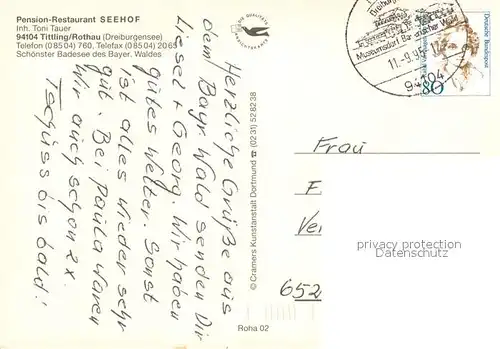 Pension-Restaurant SEEHOF
Inh. Toni Tauer
94104 Tittling/Rothau (Dreiburgensee)
Telefon (08504) 760, Telefax (08504) 2065
Schönster Badesee des Bayer. Waldes
Herzliche Grüße aus
dem Bayr Wald senden Dir
Liesel + Georg. Wir haben
gutes Wetter. Sonst
ist alles wieder sehr
gut. Bei Paula waren
wir auch schon 2x.
Tschüss bis bald!
© Cramers Kunstanstalt Dortmund ☎ (0231) 528238
Roha 02
Museumsdorf Bayerischer Wald
Deutsche Bundespost
80
Frau
F
Ve
652
privacy protection
watermark